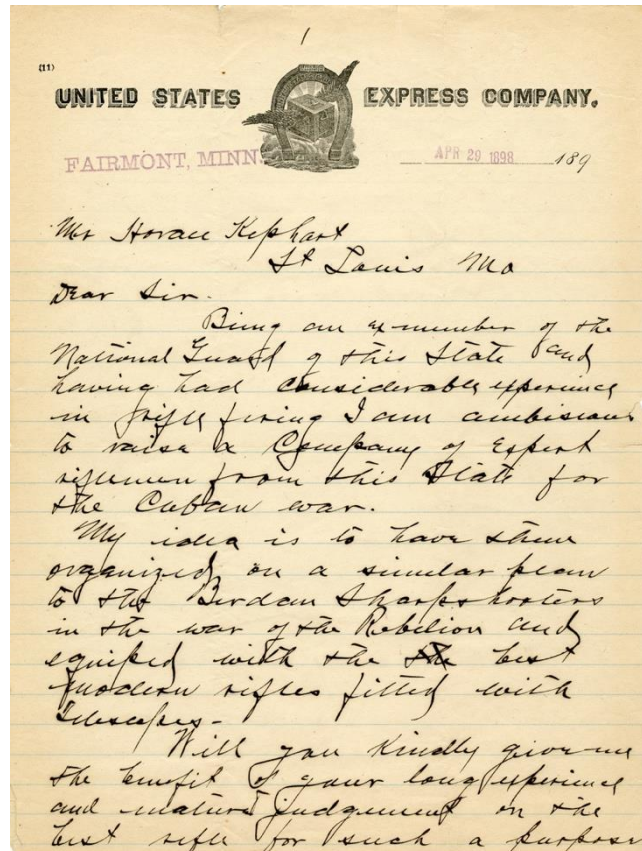 1
(11)
UNITED STATES EXPRESS COMPANY.
FAIRMONT, MINN. APR 29 1898 189
Mr Horace Kephart
St Louis Mo
Dear Sir.
Being an ex-member of the
National Guard of this State and
having had considerable experience
in rifle firing I am ambisious
to raise a Company of Expert
riflemen from this State for
the Cuban war.
My idea is to have them
organized on a similar plan
to the Berdan Sharpshooters
in the war of the Rebelion and
equiped with the the best
modern rifles fitted with
Telescopes-
Will you kindly give me
the benefit of your long experience
and mature judgement on the
best rifle for such a purpose